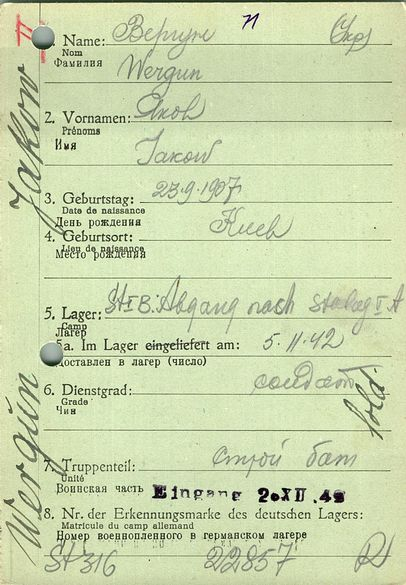 Jakow
Wergun
1. Name: Вергун Укр
Nom
Фамилия
Wergun
2. Vornamen: Яков
Prénoms
Имя
Jakow
3. Geburtstag: 23.9.1907
Date de naissance
День рождения
4. Geburtsort: Киев
Lieu de naissance
Место рождения
5. Lager: St I B. Abgang nach Stalag I A
Camp
Лагерь
5a. Im Lager eingeliefert am: 5.11.42
Доставлен в лагерь (число)
6. Dienstgrad: солдат
Grade
Чин
Sold.
7. Truppenteil: строй бат
Unité
Воинская часть Eingang 20 XII. 42
8. Nr. der Erkennungsmarke des deutschen Lagers:
Matricule du camp allemand
Номер военнопленного в германском лагере
St 316 22857